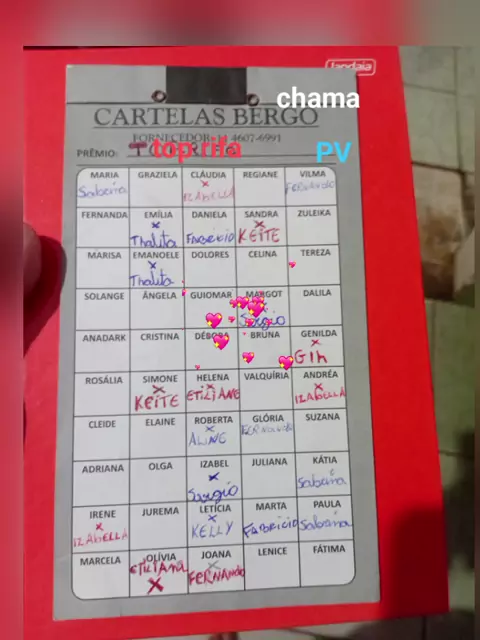 Jandaia
chama
CARTELAS BERGO
FORNECEDOR: 11 4607-6991
PRÊMIO: top rifa PV
MARIA GRAZIELA CLÁUDIA REGIANE VILMA
Sabaria x IZABELLA FERNANDO
FERNANDA EMÍLIA DANIELA SANDRA ZULEIKA
x Thalita FABRICIO x KEITE
MARISA EMANOELE DOLORES CELINA TEREZA
x Thalita
SOLANGE ÂNGELA GUIOMAR MARGOT DALILA
Sergio
ANADARK CRISTINA DÉBORA BRUNA GENILDA
x Gih
ROSÁLIA SIMONE HELENA VALQUÍRIA ANDRÉA
x KEITE x ETILIANE x IZABELLA
CLEIDE ELAINE ROBERTA GLÓRIA SUZANA
x ALINE FERNANDO
ADRIANA OLGA IZABEL JULIANA KÁTIA
x Sergio Sabaria
IRENE JUREMA LETÍCIA MARTA PAULA
x IZABELLA x KELLY FABRICIO Sabaria
MARCELA OLÍVIA JOANA LENICE FÁTIMA
ETILIANA x x FERNANDO